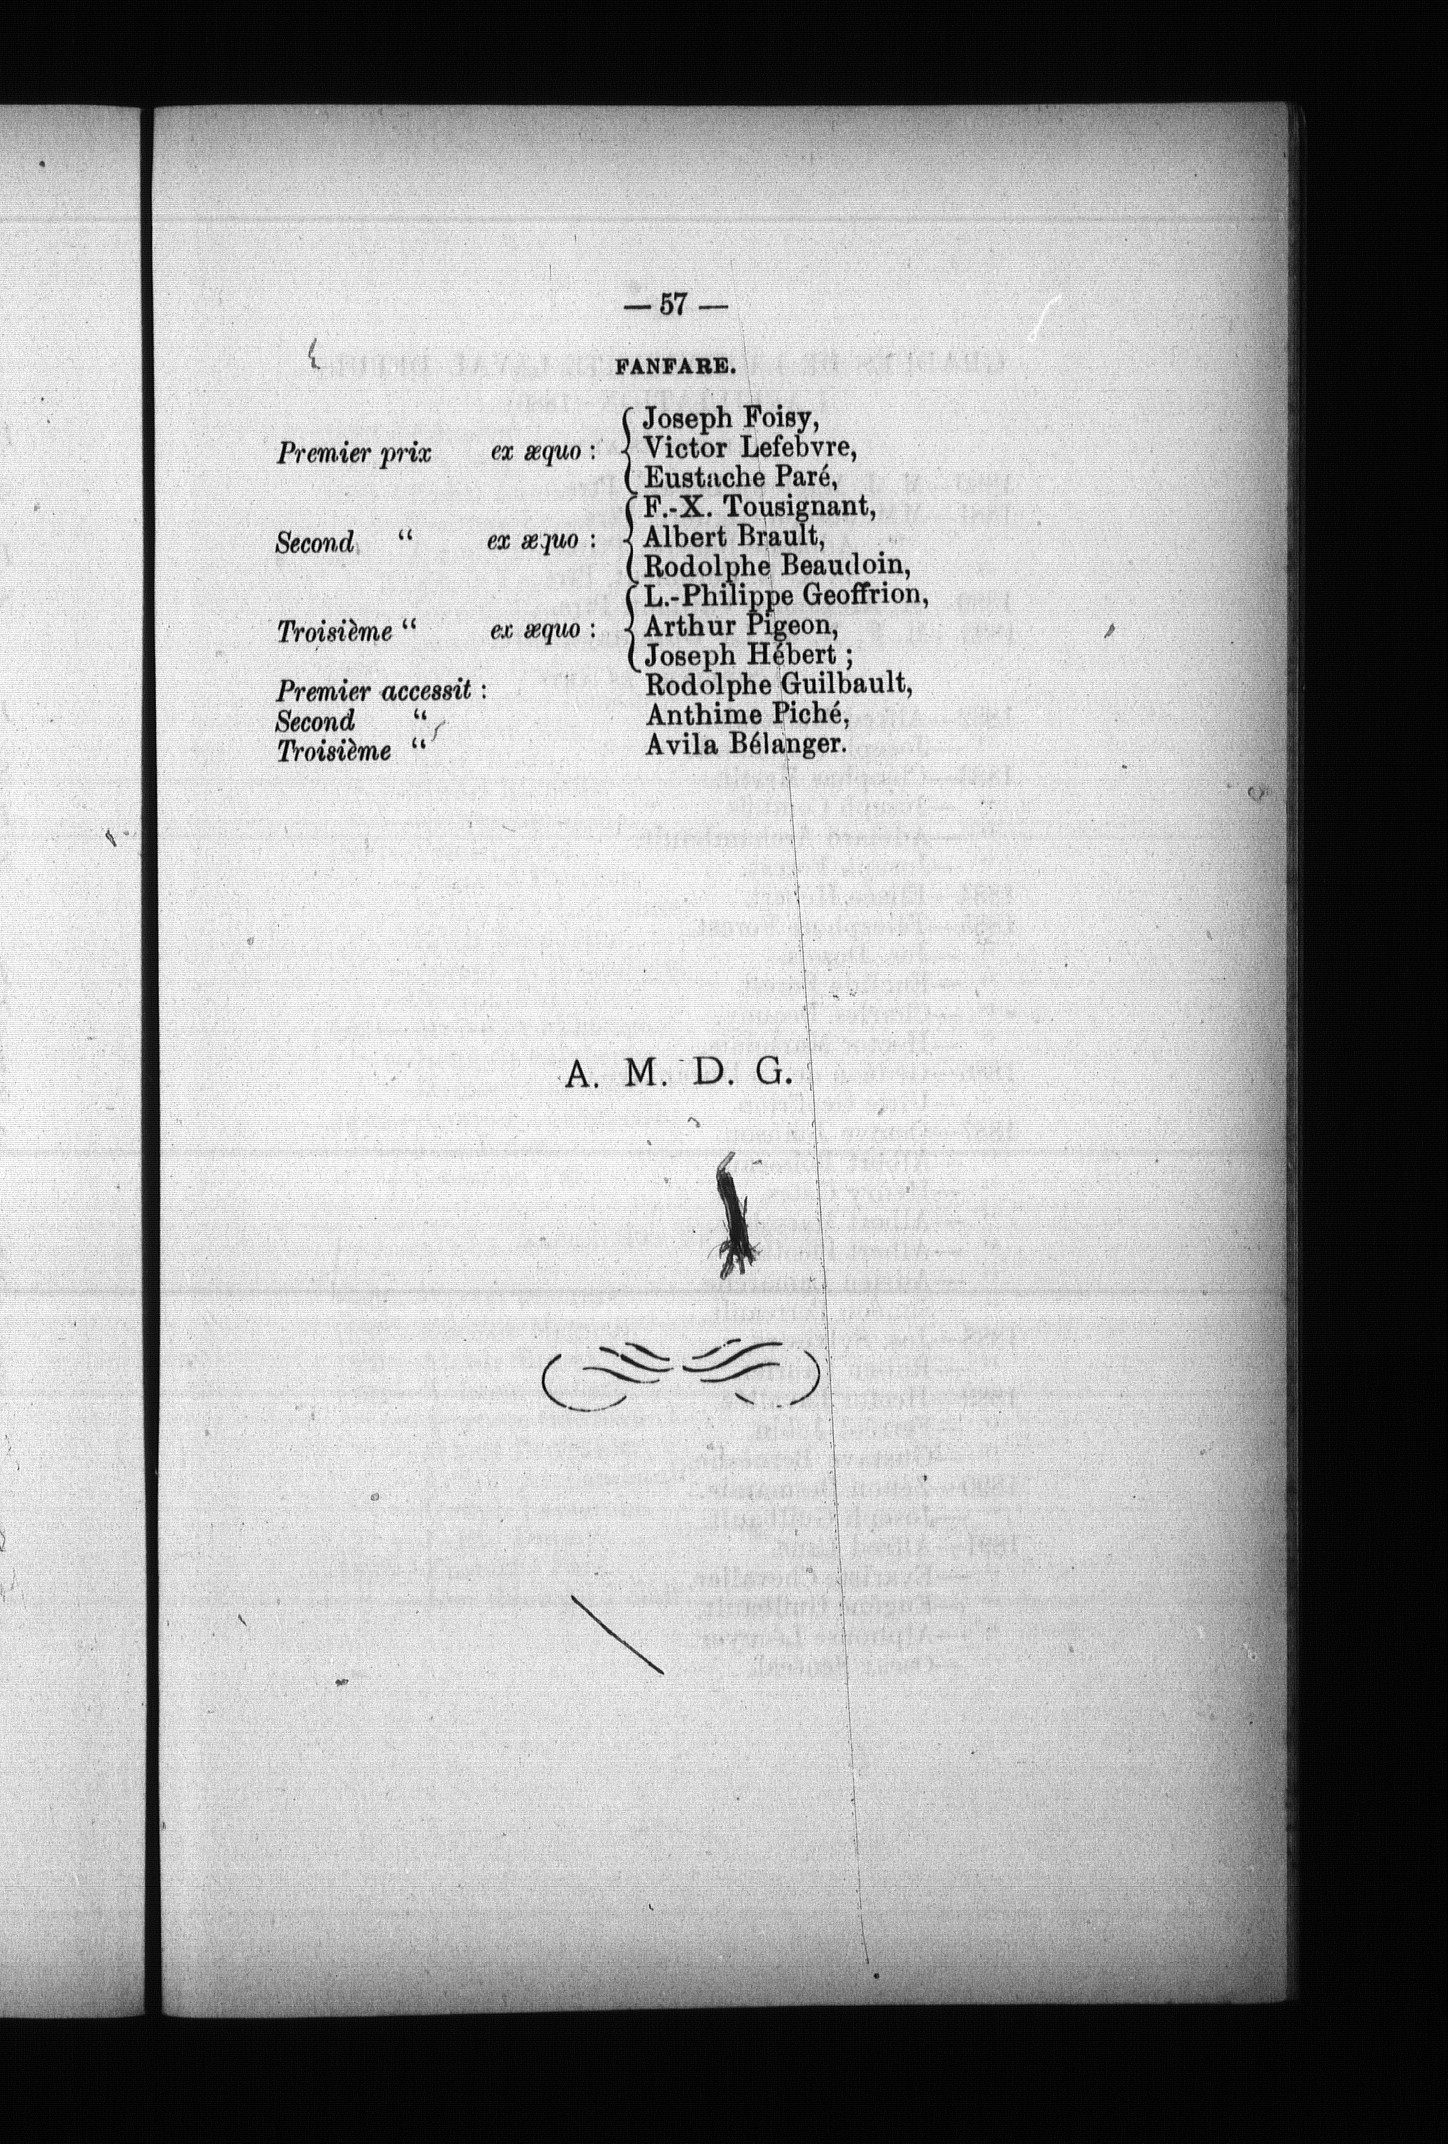 — 57 —
FANFARE.
Joseph Foisy,
Premier prix ex æquo : Victor Lefebvre,
Eustache Paré,
F.-X. Tousignant,
Second “ ex æquo : Albert Brault,
Rodolphe Beaudoin,
L.-Philippe Geoffrion,
Troisième “ ex æquo : Arthur Pigeon,
Joseph Hébert ;
Premier accessit : Rodolphe Guilbault,
Second “ Anthime Piché,
Troisième “ Avila Bélanger.
A. M. D. G.